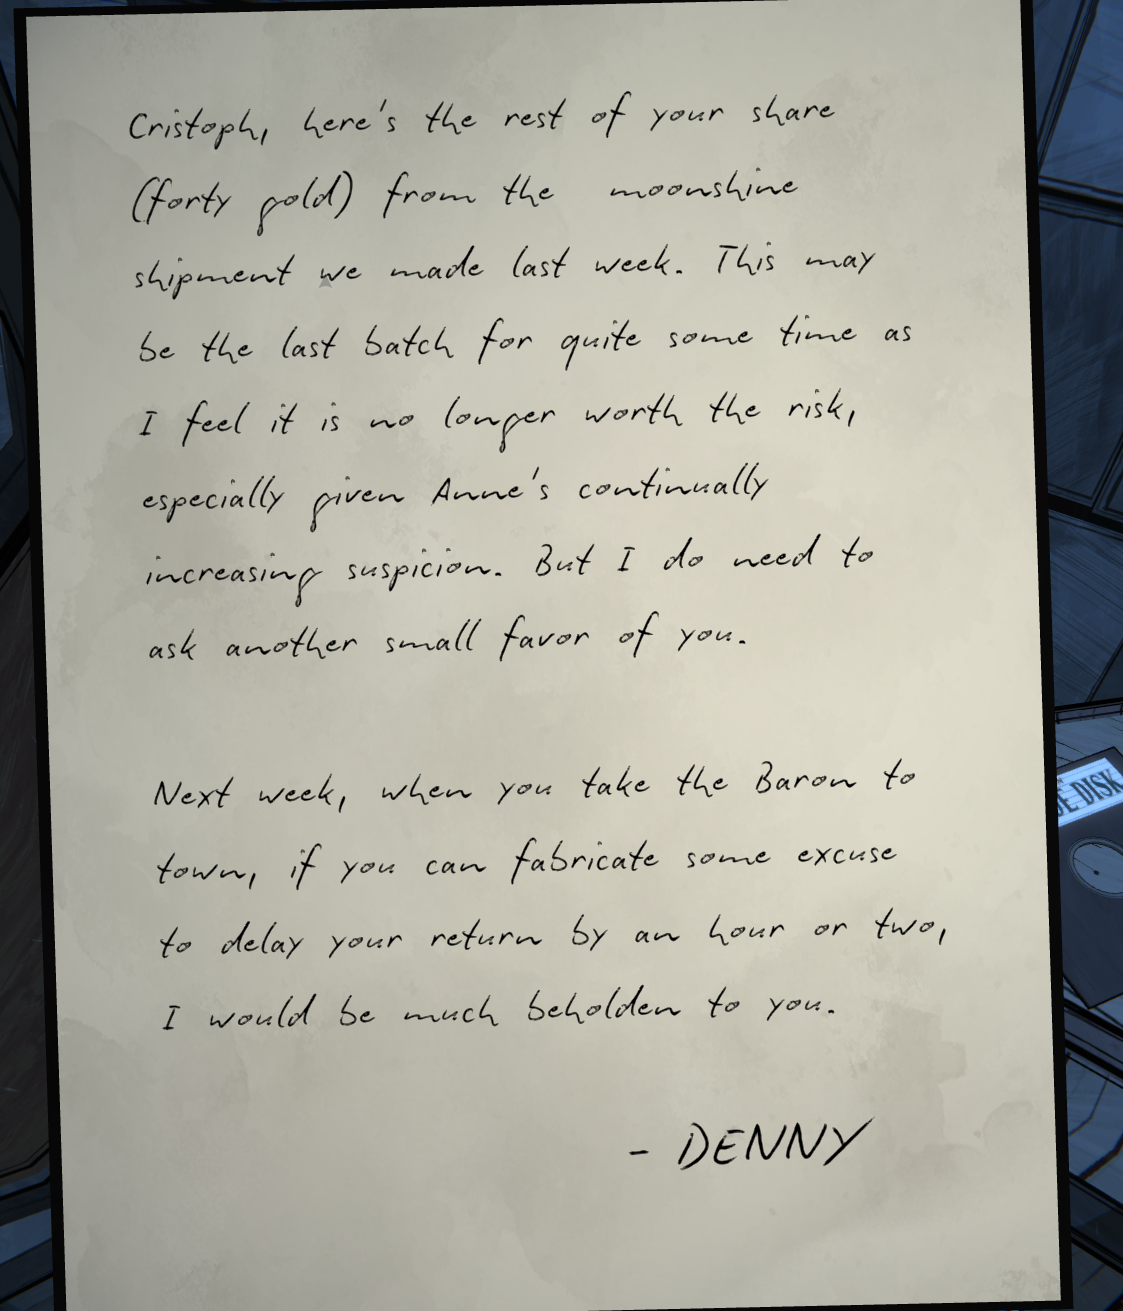 Cristoph, here's the rest of your share
(forty gold) from the moonshine
shipment we made last week. This may
be the last batch for quite some time as
I feel it is no longer worth the risk,
especially given Anne's continually
increasing suspicion. But I do need to
ask another small favor of you.
Next week, when you take the Baron to
town, if you can fabricate some excuse
to delay your return by an hour or two,
I would be much beholden to you.
- DENNY
DISK